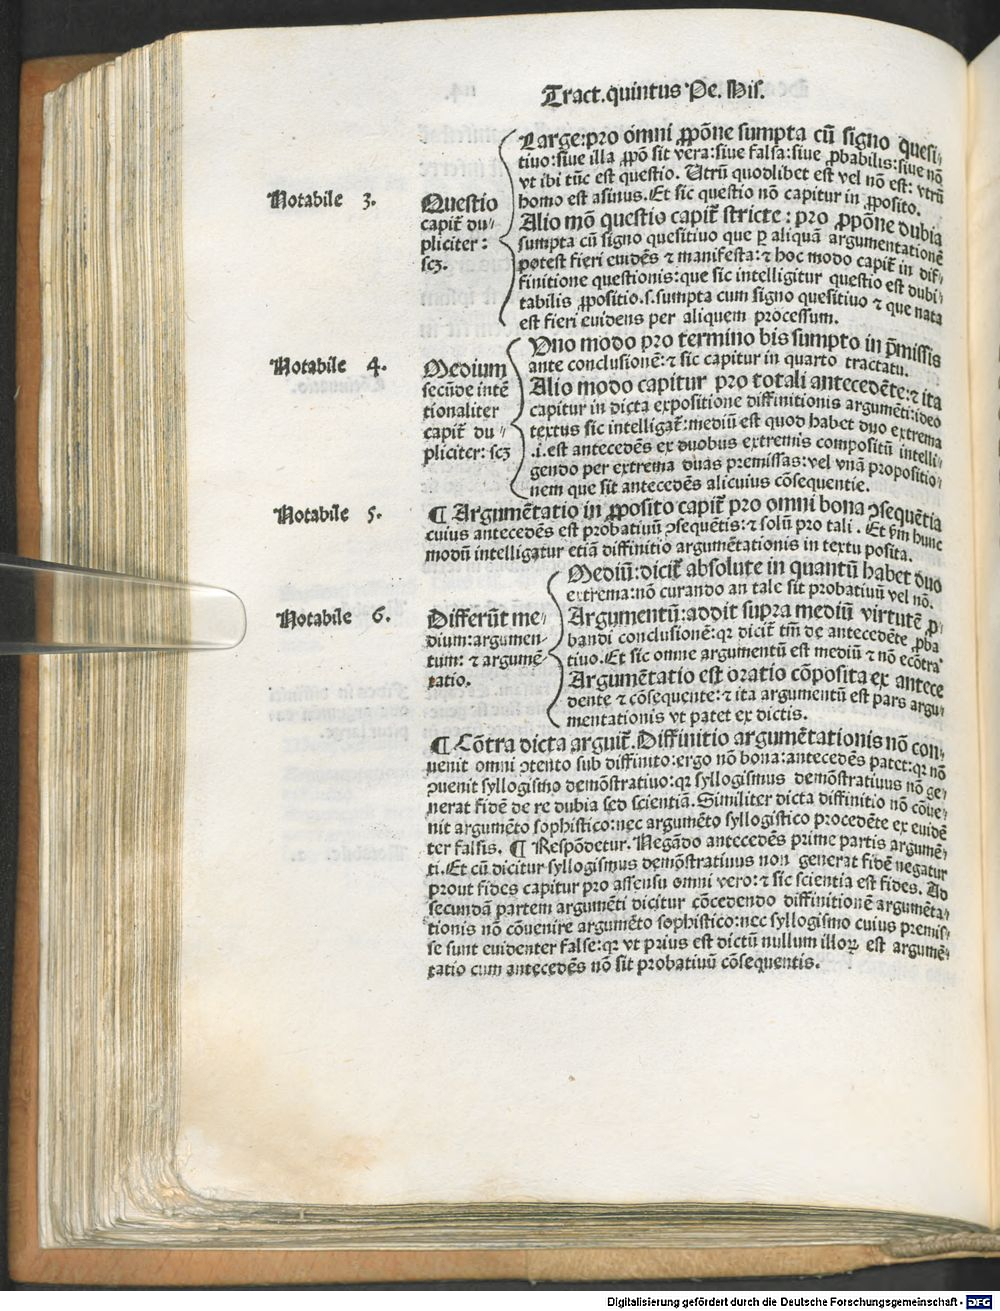 Tract. quintus Pe. His.
Notabile 3.
Questio
capit̄ du⸗
pliciter:
scꝫ.
Large: pro omni ꝓpōne sumpta cū signo quesi⸗
tiuo: siue illa ꝓpō sit vera: siue falsa: siue ꝓbabilis: siue nō
vt ibi tūc est questio. Utrū quodlibet est vel nō est: vtrū
homo est asinus. Et sic questio nō capitur in ꝓposito.
Alio mō questio capit̄ stricte: pro ꝓpōne dubia
sumpta cū signo quesitiuo que ꝑ aliquā argumentationē
potest fieri euidēs ⁊ manifesta: ⁊ hoc modo capit̄ in dif⸗
finitione questionis: que sic intelligitur questio est dubi⸗
tabilis ꝓpositio .s. sumpta cum signo quesitiuo ⁊ que nata
est fieri euidens per aliquem processum.
Notabile 4.
Medium
secūde intē
tionaliter
capit̄ du⸗
pliciter: scꝫ
Uno modo pro termino bis sumpto in p̄missis
ante conclusionē: ⁊ sic capitur in quarto tractatu.
Alio modo capitur pro totali antecedēte: ⁊ ita
capitur in dicta expositione diffinitionis argumēti: ideo
textus sic intelligat̄: mediū est quod habet duo extrema
.i. est antecedēs ex duobus extremis compositū intelli⸗
gendo per extrema duas premissas: vel vnā propositio⸗
nem que sit antecedēs alicuius cōsequentie.
Notabile 5.
¶ Argumētatio in ꝓposito capit̄ pro omni bona ꝯsequētia
cuius antecedēs est probatiuū ꝯsequētis: ⁊ solū pro tali. Et ẜm hunc
modū intelligatur etiā diffinitio argumētationis in textu posita.
Notabile 6.
Differūt me⸗
dium: argumen⸗
tum: ⁊ argumē⸗
tatio.
Mediū: dicit̄ absolute in quantū habet duo
extrema: nō curando an tale sit probatiuū vel nō.
Argumentū: addit supra mediū virtutē ꝓ⸗
bandi conclusionē: qꝛ dicit̄ tm̄ de antecedēte ꝓba
tiuo. Et sic omne argumentū est mediū ⁊ nō ecōtra
Argumētatio est oratio cōposita ex antece
dente ⁊ cōsequente: ⁊ ita argumentū est pars argu⸗
mentationis vt patet ex dictis.
¶ Cōtra dicta arguit̄. Diffinitio argumētationis nō con⸗
uenit omni ꝯtento sub diffinito: ergo nō bona: antecedēs patet: qꝛ nō
ꝯuenit syllogismo demōstratiuo: qꝛ syllogismus demōstratiuus nō ge⸗
nerat fidē de re dubia sed scientiā. Similiter dicta diffinitio nō cōue⸗
nit argumēto sophistico: nec argumēto syllogistico procedēte ex euidē
ter falsis. ¶ Respōdetur. Negādo antecedēs prime partis argumē⸗
ti. Et cū dicitur syllogismus demōstratiuus non generat fidē negatur
prout fides capitur pro assensu omni vero: ⁊ sic scientia est fides. Ad
secundā partem argumēti dicitur cōcedendo diffinitionē argumēta⸗
tionis nō cōuenire argumēto sophistico: nec syllogismo cuius premis⸗
se sunt euidenter false: qꝛ vt prius est dictū nullum illoꝝ est argumē⸗
tatio cum antecedēs nō sit probatiuū cōsequentis.
Digitalisierung gefördert durch die Deutsche Forschungsgemeinschaft - DFG